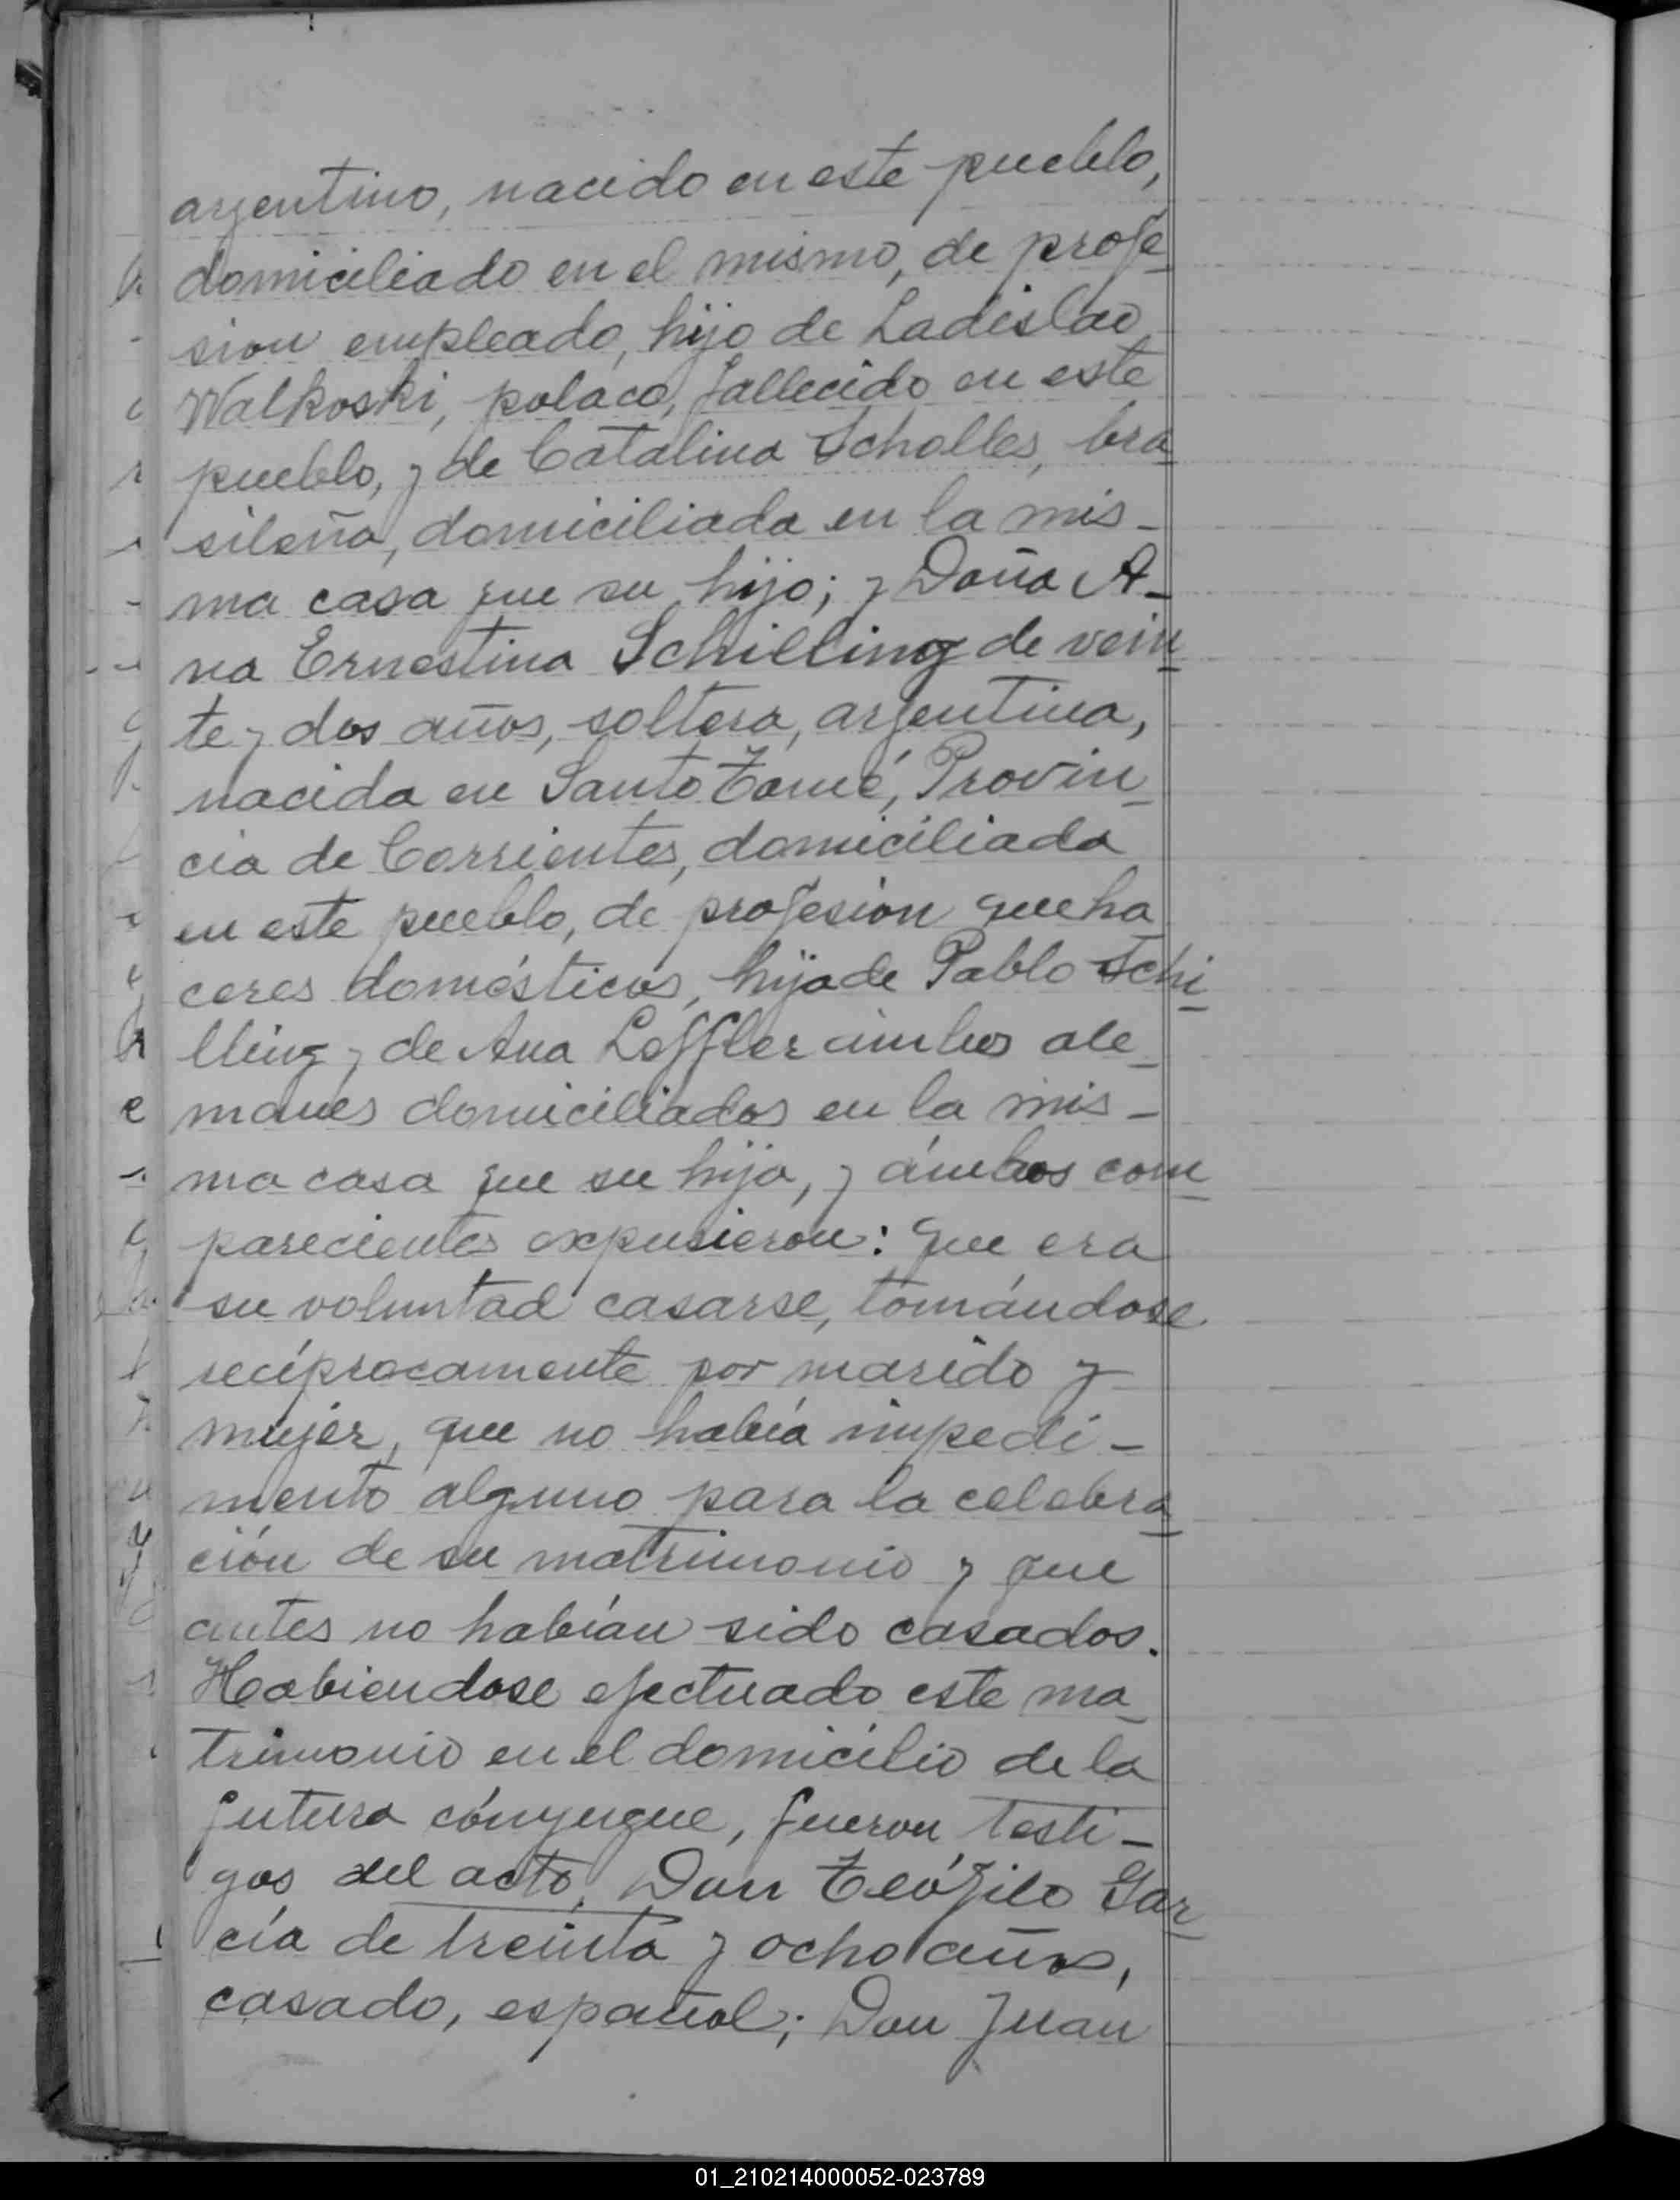 argentino, nacido en este pueblo,
domiciliado en el mismo, de profe_
sion empleado, hijo de Ladislao
Walkoski, polaco, fallecido en este
pueblo, y de Catalina Scholles, bra_
sileña, domiciliada en la mis_
ma casa que su hijo; y Doña A_
na Ernestina Schilling de vein_
te y dos años, soltera, argentina,
nacida en Santo Tomé, Provin_
cia de Corrientes, domiciliada
en este pueblo, de profesion queha_
ceres domésticos, hija de Pablo Schi_
lling y de Ana Loffler ámbos ale_
manes domiciliados en la mis_
ma casa que su hija, y ámbos com_
parecientes expusieron: que era
su voluntad casarse, tomándose
recíprocamente por marido y
mujer, que no había impedi_
mento alguno para la celebra_
ción de su matrimonio y que
antes no habían sido casados.
Habiendose efectuado este ma_
trimonio en el domicilio de la
futura cónyugue, fueron testi_
gos del acto, Don Teófilo Gar_
cía de treinta y ocho años,
casado, español; Don Juan
01_210214000052-023789